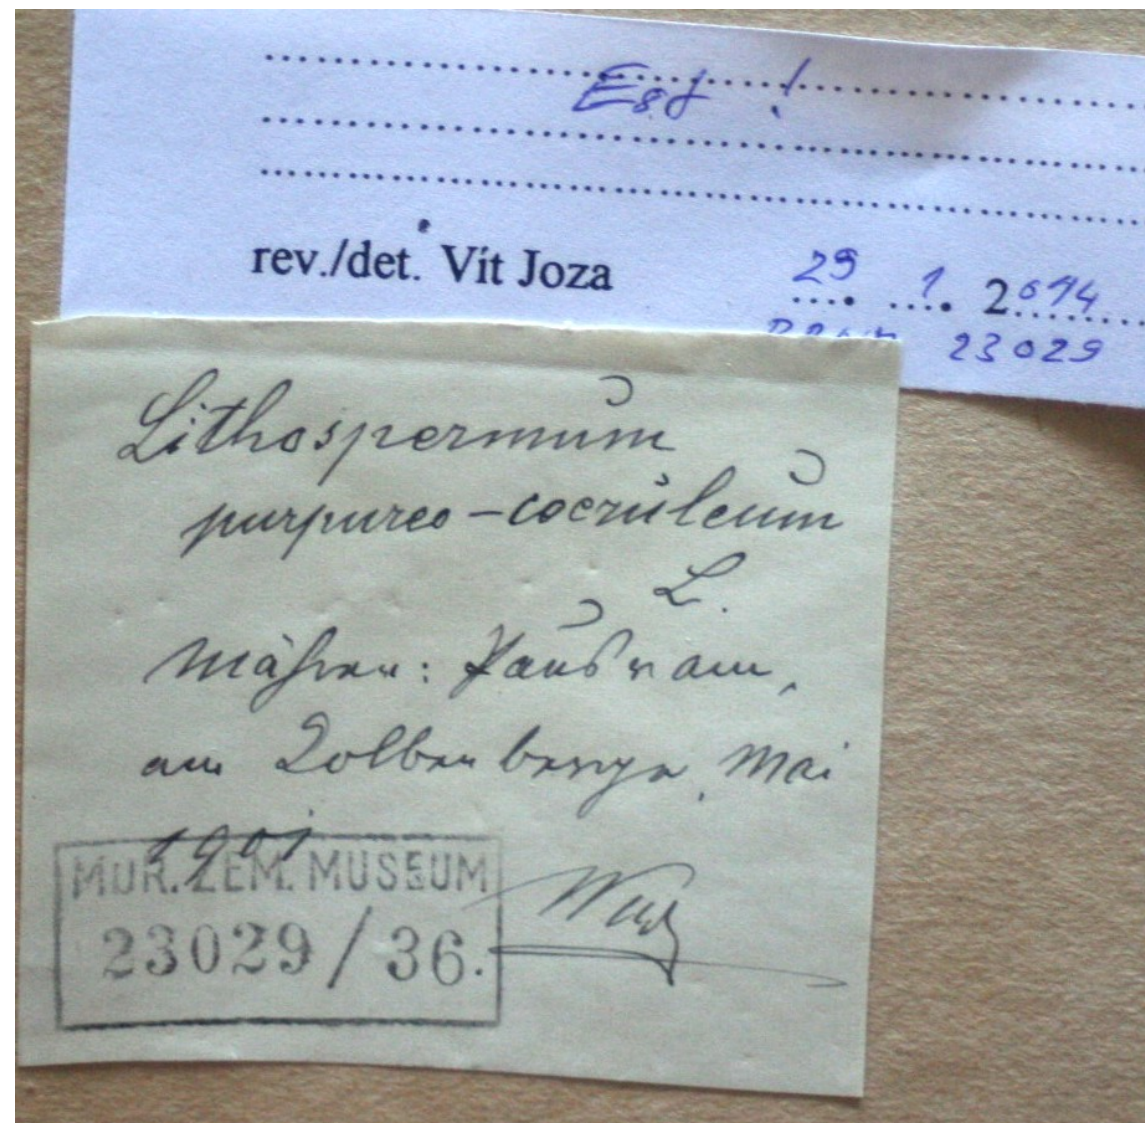 Est !
rev./det. Vít Joza 29. 1. 2014
23029
Lithospermum
purpureo-coeruleum
L.
Mähren: Pausram,
am Kolbenberge, Mai
1901
MOR. ZEM. MUSEUM
23029/36.